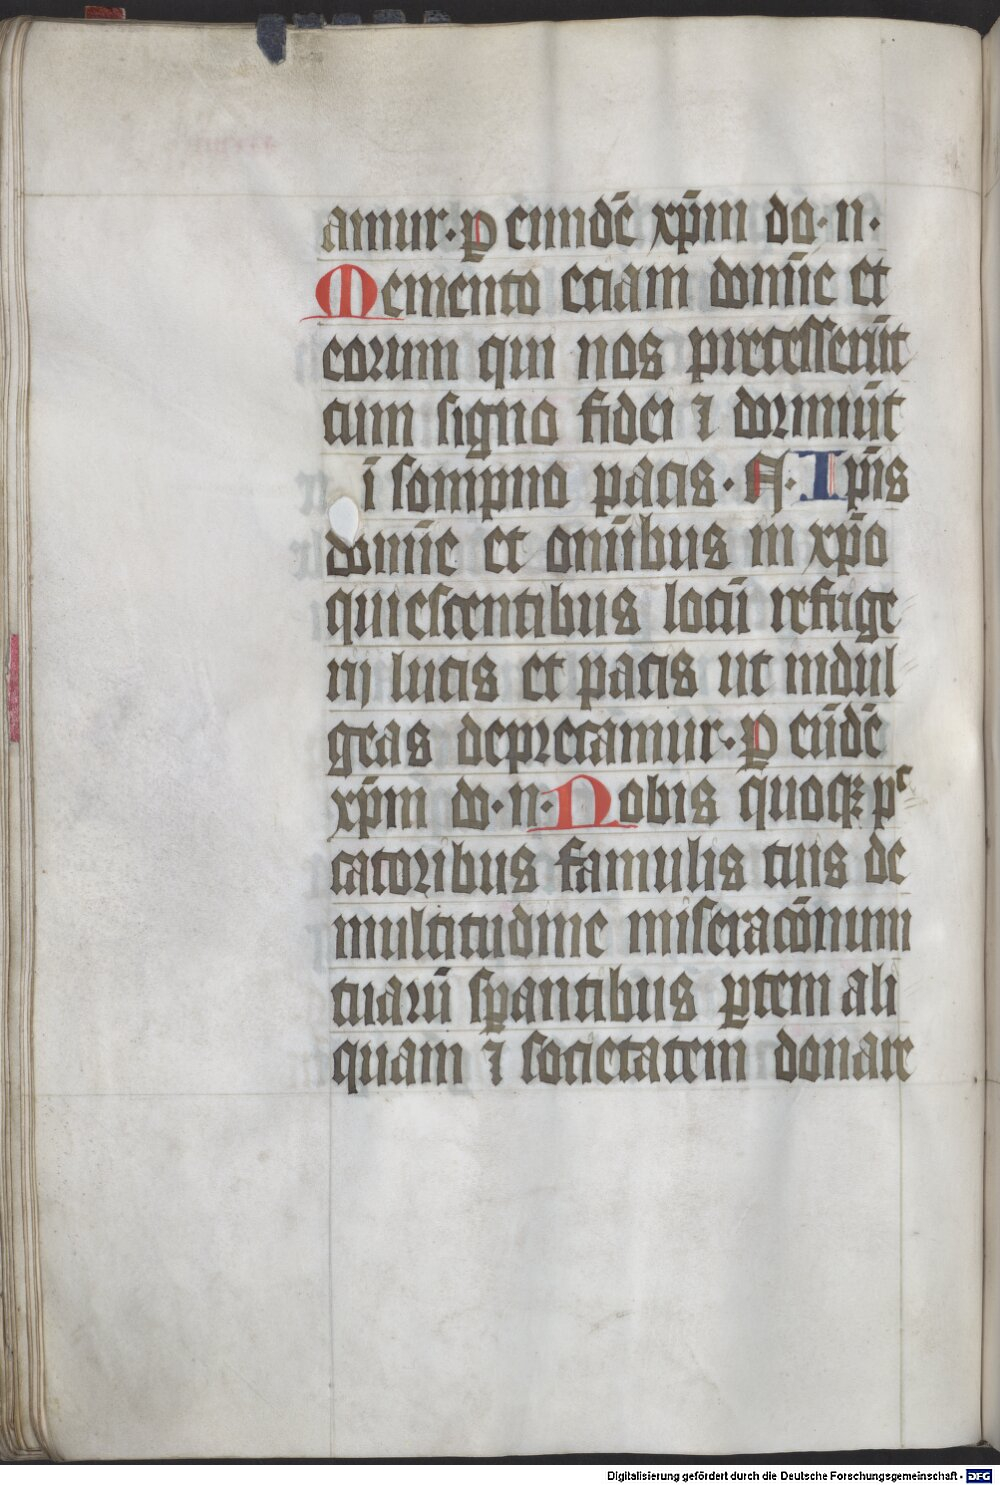 amur· ꝑ eundē xp̄m do· n·
Memento eciam domīe et
eorum qui nos precesserūt
cum signo fidei ⁊ dormiūt
ī sompno pacis· A· Ip̄is
domīe et om̄ibus in xp̄o
quiescentibus locū refrige
rij lucis et pacis ut indul
geas deprecamur· ꝑ eūdē
xp̄m do· n· Nobis quoqꝫ pᶜ
catoribus famulis tuis de
multitudine miseracōnum
tuarū sꝑantibus ꝑtem ali
quam ⁊ societatem donare
Digitalisierung gefördert durch die Deutsche Forschungsgemeinschaft - DFG